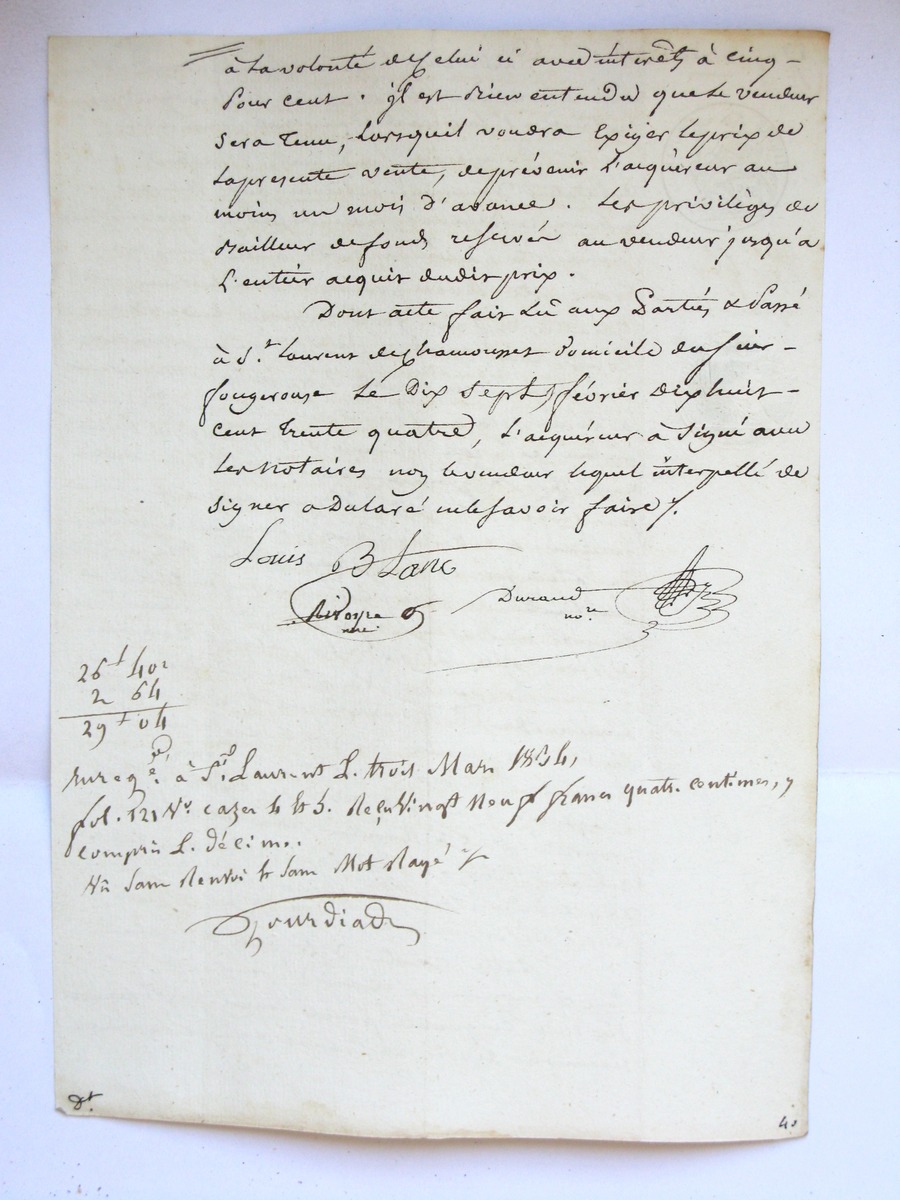 à la volonté de Celui ci avec intérêts à cinq -
Pour cent. jl est bien entendu que le vendeur
sera tenu, lorsquil voudra Exiger le prix de
la presente vente, de prévenir l'acquéreur au
moins un mois d'avance. Les privilèges de
Bailleur de fonds reservés au vendeur jusqu'a
L'entier acquit dudit prix.
Dont acte fait Lû aux Parties & Passé
à St. Laurent de Chamousset Domicile du sieur -
fougerouse Le Dix Sept février dix huit -
cent Trente quatre, L'acquéreur à Signé avec
Les Notaires non le vendeur lequel interpellé de
Signer a Déclaré ne le savoir faire /.
Louis Blanc
nre
Durand
nore
26f 40c
2 64
29f 04
Enregé. à St. Laurent L. trois Mars 1834,
fol. 121 Vo. cazes 4 & 5. Reçu Vingt Neuf francs quatre centimes, y
compris L. décime.
Vu Sans Renvoi & Sans Mot Rayé
Dt.
4.